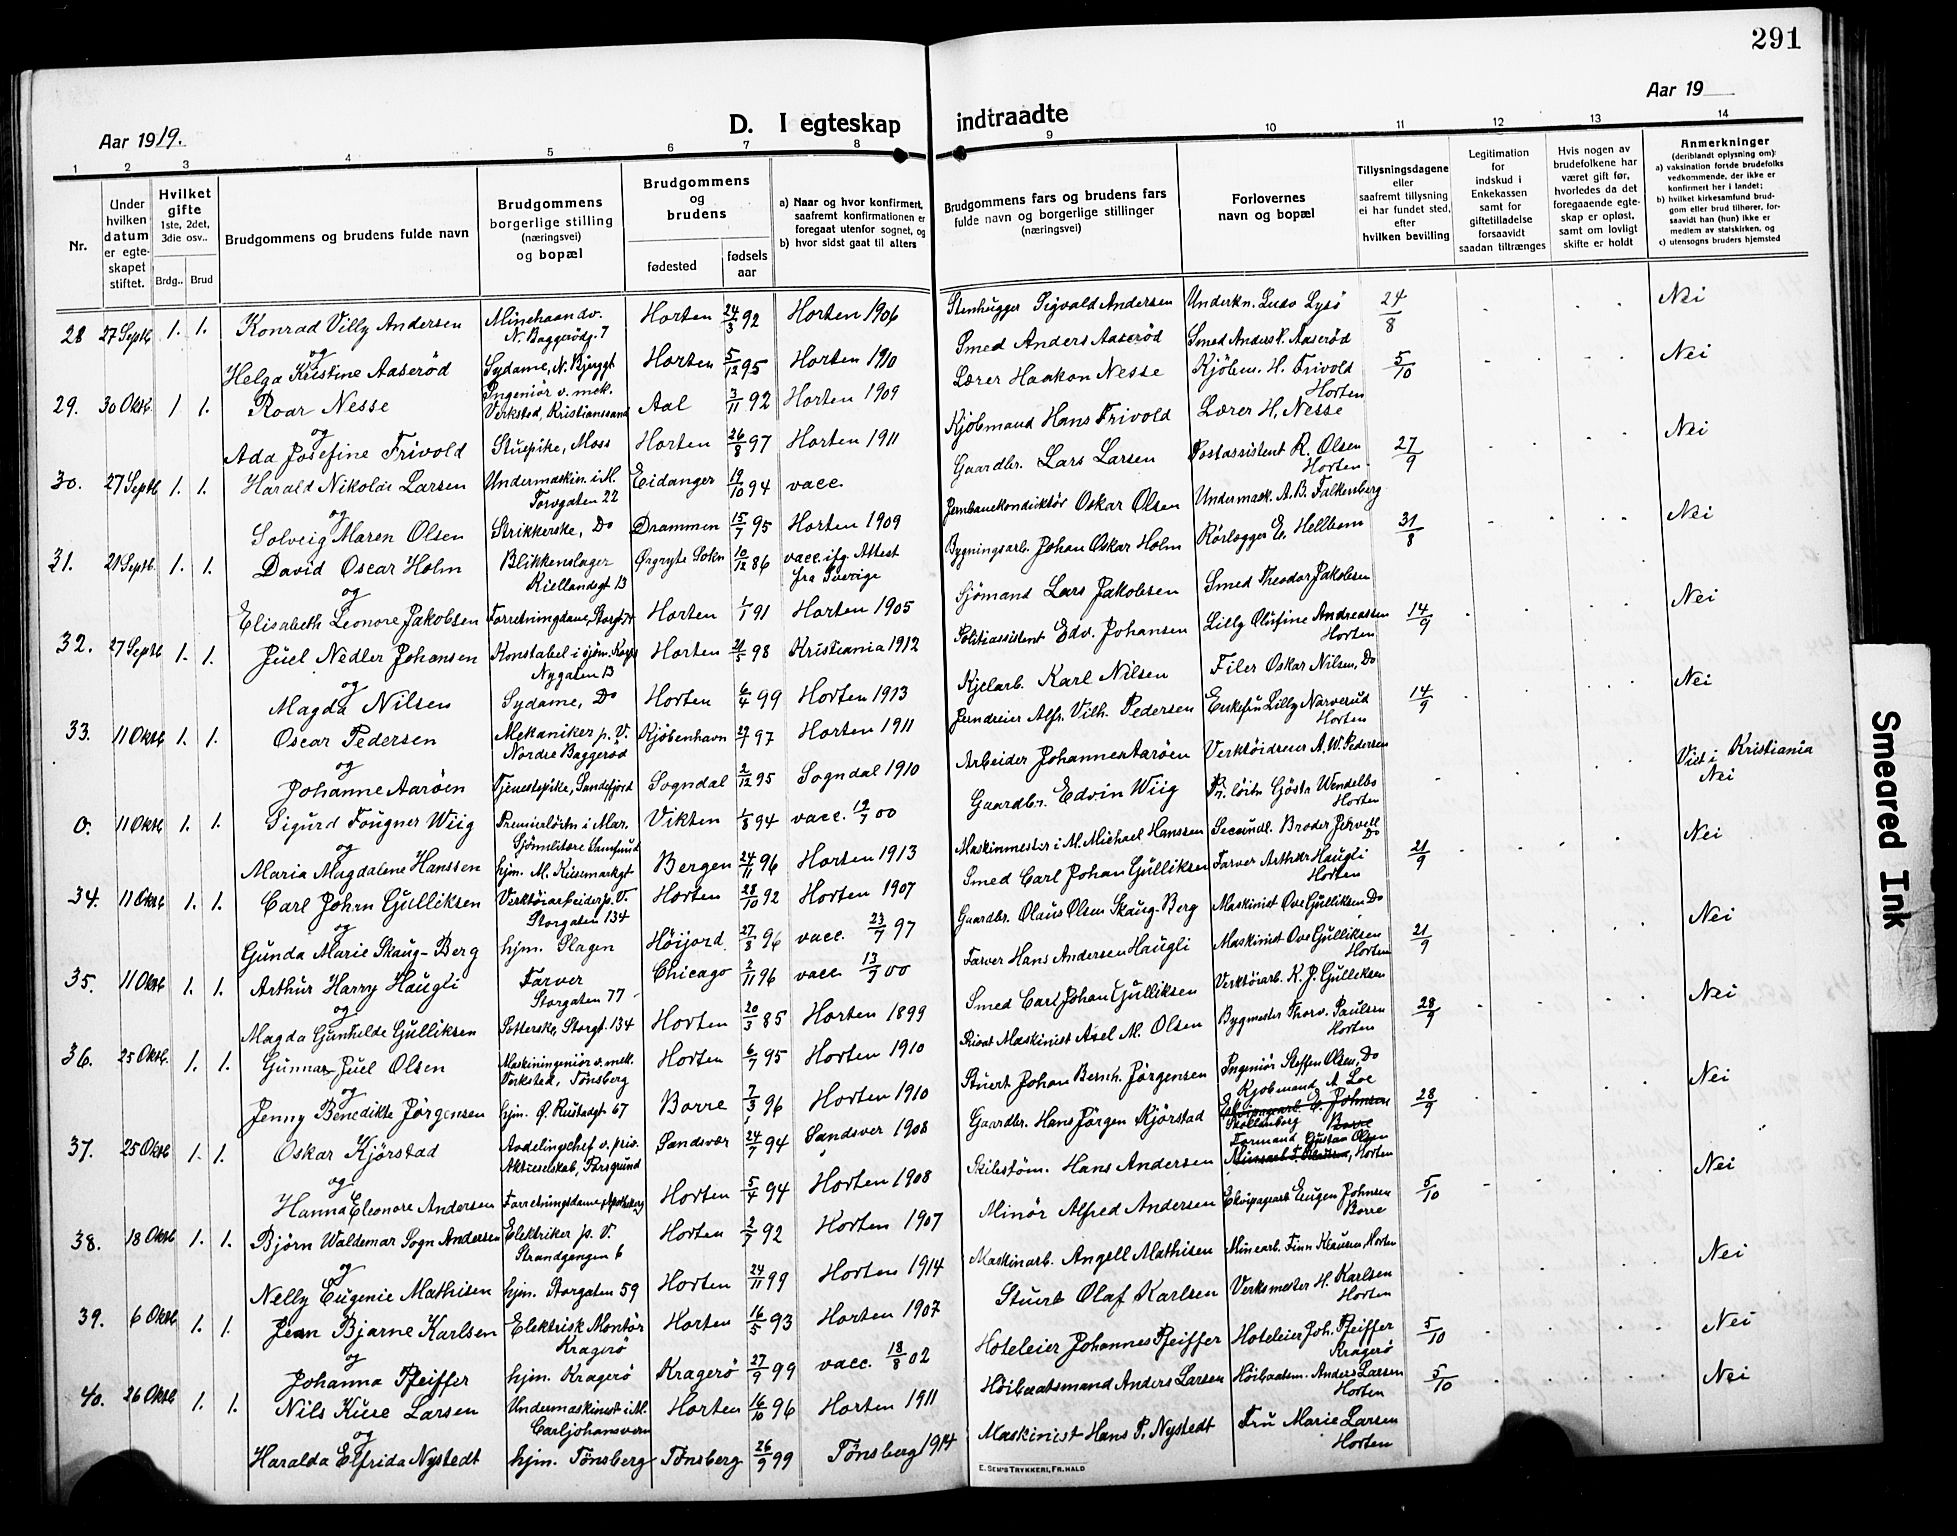 291
Aar 19
Aar 1919.
D. I egteskap indtraadte
1 2 3 4 5 6 7 8 9 10 11 12 13 14
Nr.
Under hvilken datum er egteskapet stiftet.
Hvilket gifte
1ste, 2det, 3die osv..
Brdg.. Brud
Brudgommens og brudens fulde navn
Brudgommens borgerlige stilling (næringsvei) og bopæl
Brudgommens og brudens
fødested
fødsels aar
a) Naar og hvor konfirmert, saafremt konfirmationen er foregaat utenfor sognet, og
b) hvor sidst gaat til alters
Brudgommens fars og brudens fars fulde navn og borgerlige stillinger (næringsvei)
Forlovernes navn og bopæl
Tillysningsdagene eller saafremt tillysning ei har fundet sted, efter hvilken bevilling
Legitimation for indskud i Enkekassen samt for giftetilladelse forsaavidt saadan tiltrænges
Hvis nogen av brudefolkene har været gift før, hvorledes da det foregaaende egteskap er opløst, samt om lovligt skifte er holdt
Anmerkninger
(deriblandt oplysning om):
a) vaksination forsde brudefolks vedkommende, der ikke er konfirmert her i landet;
b) hvilket kirkesamfund brudgom eller brud tilhører, forsaavidt han (hun) ikke er medlem av statskirken, og
c) utensogns bruders hjemsted
28 27 Septb 1. 1. Konrad Villy Andersen Minehaandv. N. Baggerödg. 7 Horten 24/3 92 Horten 1906 Stenhugger Sigvald Andersen Underkn. Lysö 24/8 Nei
og
Helga Kristine Aaseröd Sydame, N. Bjerggt Horten 5/12 95 Horten 1910 Smed Anders Aaseröd Smed Anders P. Aaseröd
29. 30 Oktb. 1 1. Roar Nesse Ingeniör v. mek. Verksted, Kristianssand Aal 3/11 92 Horten 1909 Lærer Haakon Nesse Kjöbm. H. Frivold Horten 5/10 Nei
og
Ada Josefine Frivold Stuepike, Moss Horten 26/8 97 Horten 1911 Kjöbmand Hans Frivold Lærer H. Nesse
30. 27 Septb 1. 1. Harald Nikolai Larsen Undermaskin. i M. Torvgaten 22 Eidanger 19/10 94 vacc Gaardbr. Lars Larsen Postassistent R. Olsen Horten 27/9 Nei
og
Solveig Maren Olsen Strikkerske, Do Drammen 15/7 95 Horten 1909 Jernbanekondüktör Oskar Olsen Undermask. A. B. Falkenberg
31. 21 Septb. 1. 1. David Oscar Holm Blikkenslager Kiellandsgt 13 Örgryte Sokn 10/12 86 vacc. ifg. Attest fra Sverige Bygningsarb. Johan Oskar Holm Rörlegger E. Hellbom 31/8 Nei
og
Elisabeth Leonore Jakobsen Forretningdame, Storgt Horten 1/1 91 Horten 1905 Sjömand Lars Jakobsen Smed Theodor Jakobsen
32. 27 Septb 1. 1. Juel Nedler Johansen Konstabel i sjöm. Korps Nygaten 13 Horten 21/5 98 Kristiania 1912 Politiassistent Edv. Johansen Lilly Olüfine Andreassen Horten 14/9 Nei
og
Magda Nilsen Sydame, Do Horten 6/4 99 Horten 1913 Kjelarb. Karl Nilsen Filer Oskar Nilsen, Do
33. 11 Oktb 1. 1. Oscar Pedersen Mekaniker p. V. Nordre Baggeröd Kjöbenhavn 27/7 97 Horten 1911 Jerndreier Alfr. Vilh. Pedersen Enkefru Lilly Narverud Horten 14/9 Nei
og
Johanne Aaröen Tjenestepike, Sandefjord Sogndal 2/12 95 Sogndal 1910 Arbeider Johannes Aaröen Verktöidreier A. W. Pedersen
0. 11 Oktb 1. 1. Sigurd Fougner Wiig Premierlöitn i Mar. Sjömilitære Samfund Vikten 1/8 94 vacc. 19/7 00 Gaardbr. Edvin Wiig Pr. löitn Gösta Wendelbo Horten Viet i Kristiania Nei
og
Maria Magdalene Hanssen hjm. M. Kirsemarkgt Bergen 24/11 96 Horten 1913 Maskinmester i M. Michael Hanssen Secundl. Broder Do
34. 11 Oktb 1. 1. Carl Johan Gulliksen Verktöiarbeider p. V. Storgaten 134 Horten 28/10 92 Horten 1907 Smed Carl Johan Gulliksen Farver Arthur Haugli Horten 21/9 Nei
og
Gunda Marie Skaug-Berg hjm. Slagen Höijord 27/8 96 vacc. 23/7 97 Gaardbr. Olaus Olsen Skaug-Berg Maskinist Ove Gulliksen Do
35. 11 Oktb 1. 1. Arthur Harry Haugli Farver Storgaten 77 Chicago 2/11 96 vacc 13/7 00 Farver Hans Andersen Haugli Maskinist Ove Gulliksen Horten 21/9 Nei
og
Magda Gunhilde Gulliksen Setterske, Storgt. 134 Horten 20/3 85 Horten 1899 Smed Carl Johan Gulliksen Verktöiarb. K. J. Gulliksen
36. 25 Oktb. 1. 1. Gunnar Juel Olsen Maskiningeniör v. mek. Verksted, Tönsberg Horten 6/7 95 Horten 1910 Privat Maskinist Axel M. Olsen Bygmester Thorv. Paulsen Horten 28/9 Nei
og
Jenny Benedikte Jörgensen hjm. Ö. Rustadgt 67 Borre 7/3 96 Horten 1910 Stuert Johan Bernh. Jörgensen Ingeniör Steffen Olsen, Do
37. 25 Oktb 1. 1. Oskar Kjörstad Avdelingschef v. priv. Aktieselskab, Porsgrund Sandsvær 24/7 94 Sandsver 1908 Gaardbr. Hans Jörgen Kjörstad Kjöbmand A. Loe Skollenborg Ekvipagearb. E. Johnsen Borre 28/9 Nei
og
Hanna Eleonore Andersen Forretningsdame, Horten 5/4 94 Horten 1908 Seilstöm. Hans Andersen Formand Gustav Olsen Horten
38. 18 Oktb 1. 1. Björn Waldemar Sogn Andersen Elektriker p. V. Strandgangen 6 Horten 2/7 92 Horten 1907 Minör Alfred Andersen Ekvipagearb Eugen Johnsen Borre 5/10 Nei
og
Nelly Eugenie Mathisen hjm. Storgaten 59 Horten 24/11 99 Horten 1914 Maskinarb. Angell Mathisen Minearb. Finn Klausen, Horten
39. 6 Oktb 1. 1. Jean Bjarne Karlsen Elektrisk Montör Kragerö Horten 16/5 93 Horten 1907 Stuert Olaf Karlsen Verksmester H. Karlsen Horten Nei
og
Johanna Pfeiffer hjm. Kragerö Kragerö 27/9 99 vacc. 18/8 02 Hoteleier Johannes Pfeiffer Hoteleier Joh. Pfeiffer Kragerö 5/10 Nei
40. 26 Oktb 1. 1. Nils Kure Larsen Undermaskinist i M. Carljohansvern Horten 16/10 96 Horten 1911 Höibaatsmand Anders Larsen Höibaatsm. Anders Larsen Horten 5/10 Nei
og
Haralda Elfrida Nystedt hjm. Tönsberg Tönsberg 26/9 99 Tönsberg 1914 Maskinist Hans P. Nystedt Fru Marie Larsen Horten
E. SEM'S TRYKKERI, FR.HALD
Smeared Ink